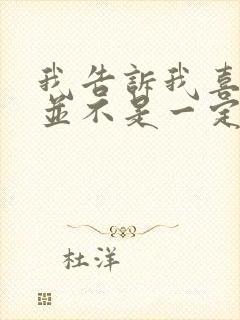 我告訴我喜
並不是一定
杜洋